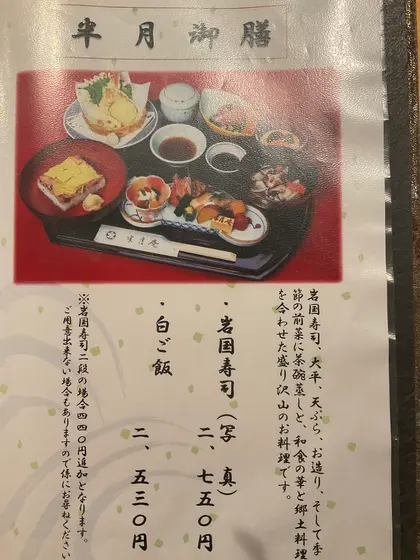 半月御膳
半月庵
岩国寿司、大平、天ぷら、お造り、そして季
節の前菜に茶碗蒸しと、和食の華と郷土料理
を合わせた盛り沢山のお料理です。
・岩国寿司(写真) 二、七五〇円
・白ご飯 二、五三〇円
※岩国寿司二段の場合四四〇円追加となります。
ご用意出来ない場合もありますので係にお尋ねください